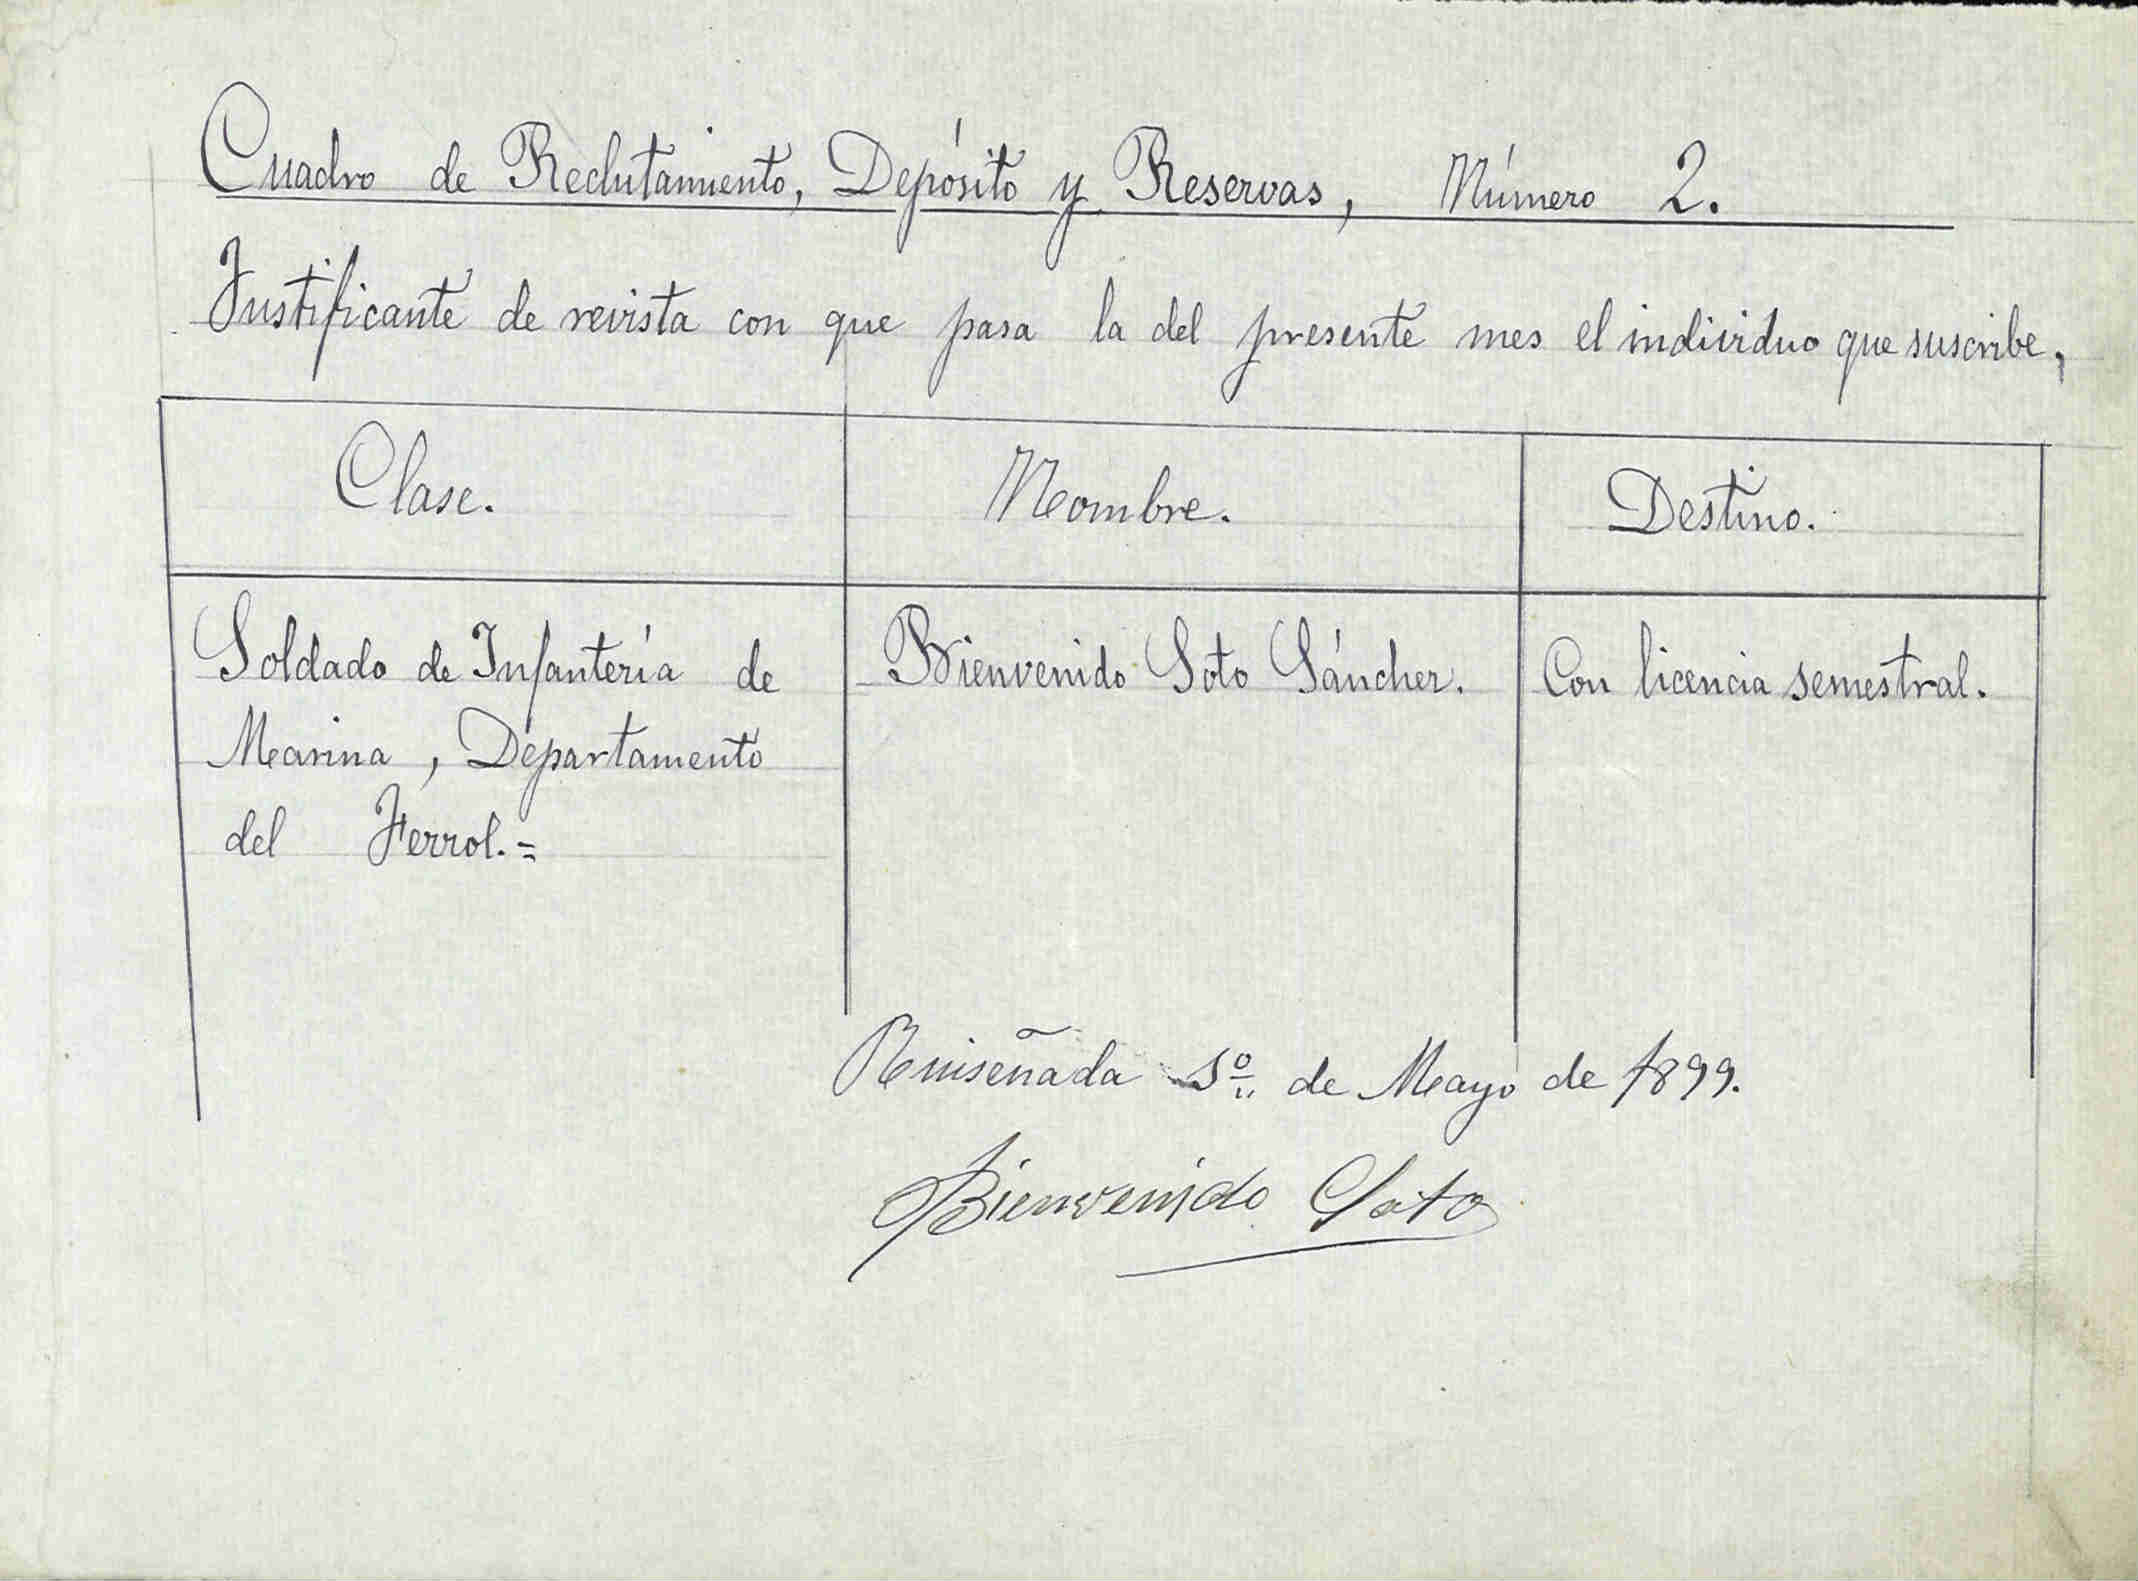 Cuadro de Reclutamiento, Depósito y Reservas, Número 2.
Justificante de revista con que pasa la del presente mes el individuo que suscribe,
Clase. Nombre. Destino.
Soldado de Infantería de Bienvenido Soto Sánchez. Con licencia semestral.
Marina, Departamento
del Ferrol.=
Ruiseñada 1º de Mayo de 1899.
Bienvenido Soto